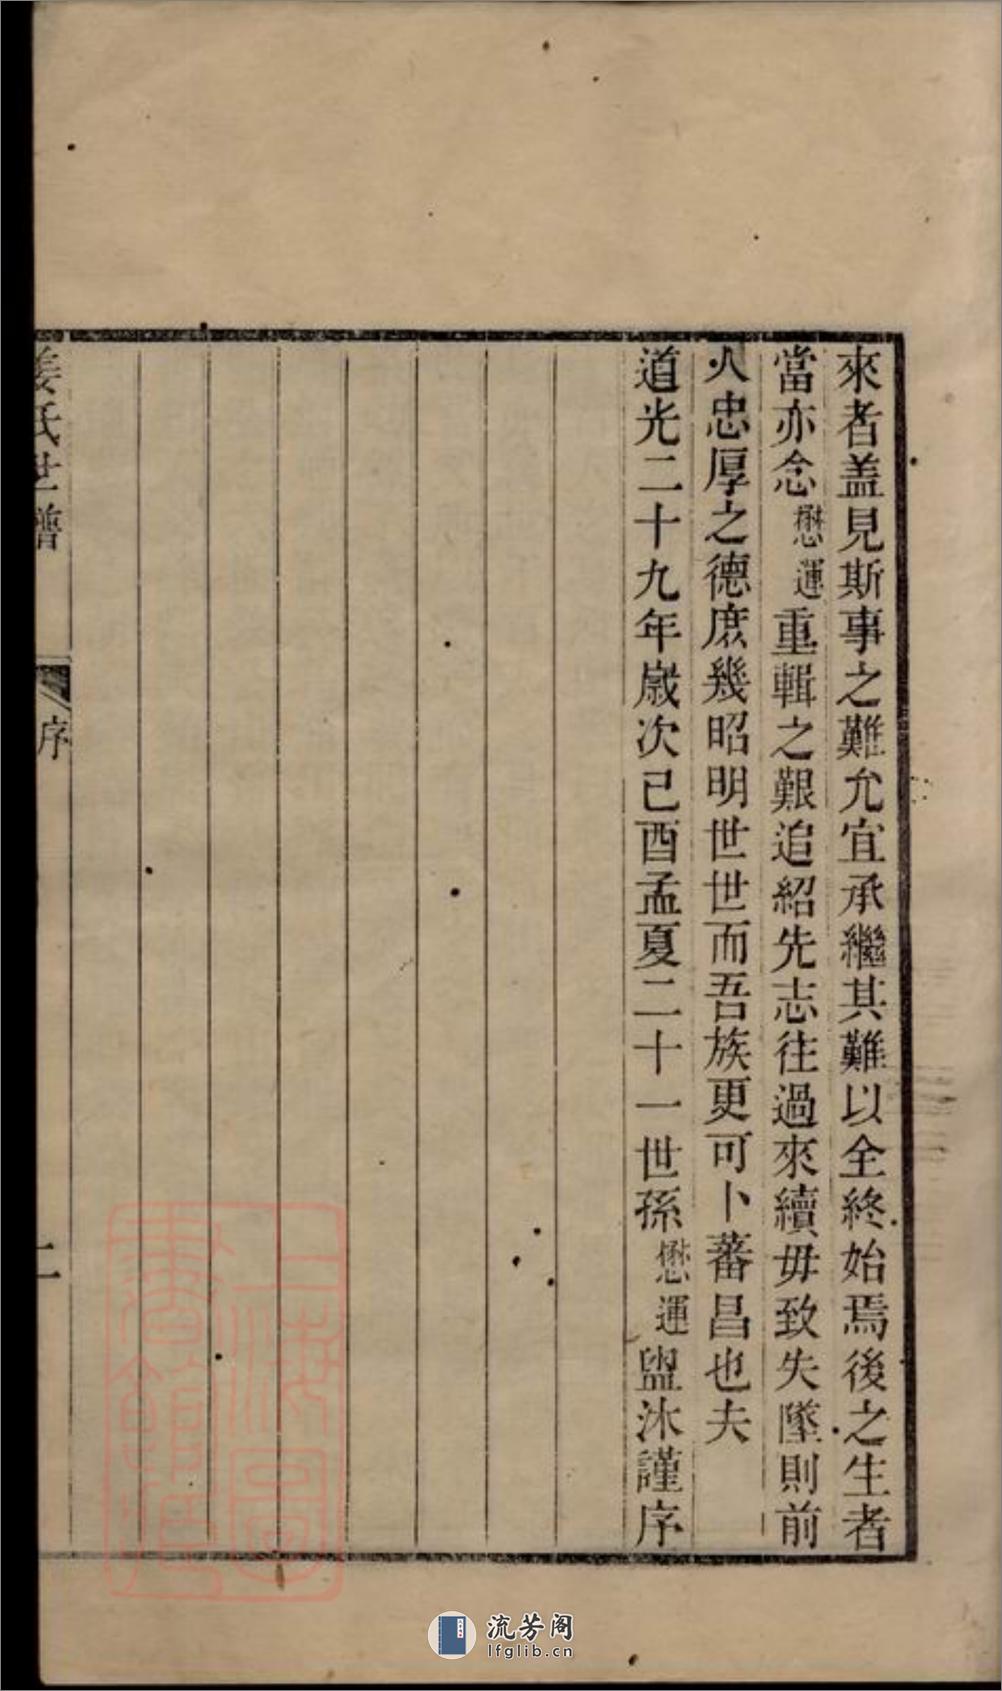 來者盖見斯事之難允宜承繼其難以全終始焉後之生者
當亦念懋運重輯之艱追紹先志往過來續毋致失墜則前
人忠厚之德庶幾昭明世世而吾族更可卜蕃昌也夫
道光二十九年歲次己酉孟夏二十一世孫懋運盥沐謹序
姜氏世譜
序
二
上海圖書館藏
流芳阁
lfglib.cn